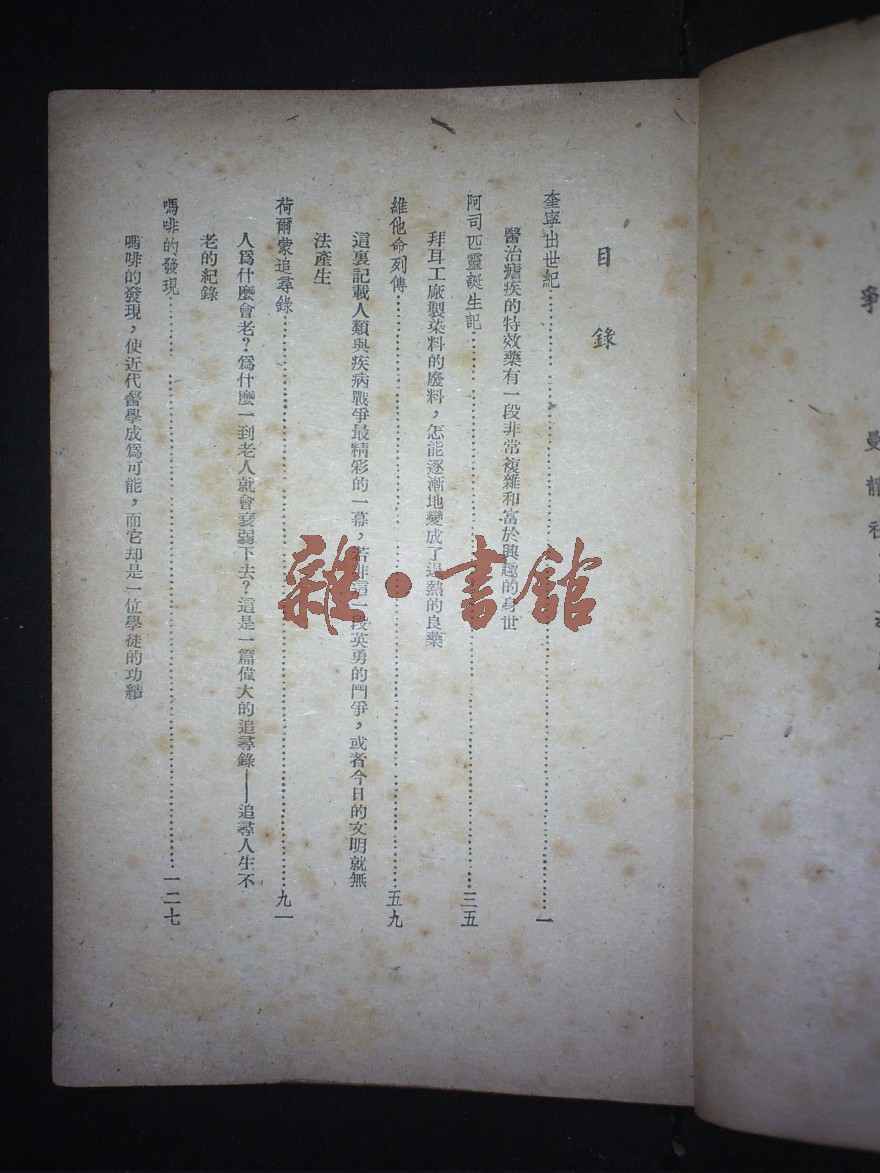 目錄
奎寧出世紀……一
醫治瘧疾的特效藥有一段非常複雜和富於興趣的身世
阿司匹靈誕生記……三五
拜耳工廠製染料的廢料，怎能逐漸地變成了退熱的良藥
維他命列傳……五九
這裏記載人類與疾病戰爭最精彩的一幕，若非這一段英勇的鬥爭，或者今日的文明就無
法產生
荷爾蒙追尋錄……九一
人爲什麼會老？爲什麼一到老人就會衰弱下去？這是一篇偉大的追尋錄——追尋人生不
老的紀錄
嗎啡的發現……一二七
嗎啡的發現，使近代醫學成爲可能，而它却是一位學徒的功績
雜·書館